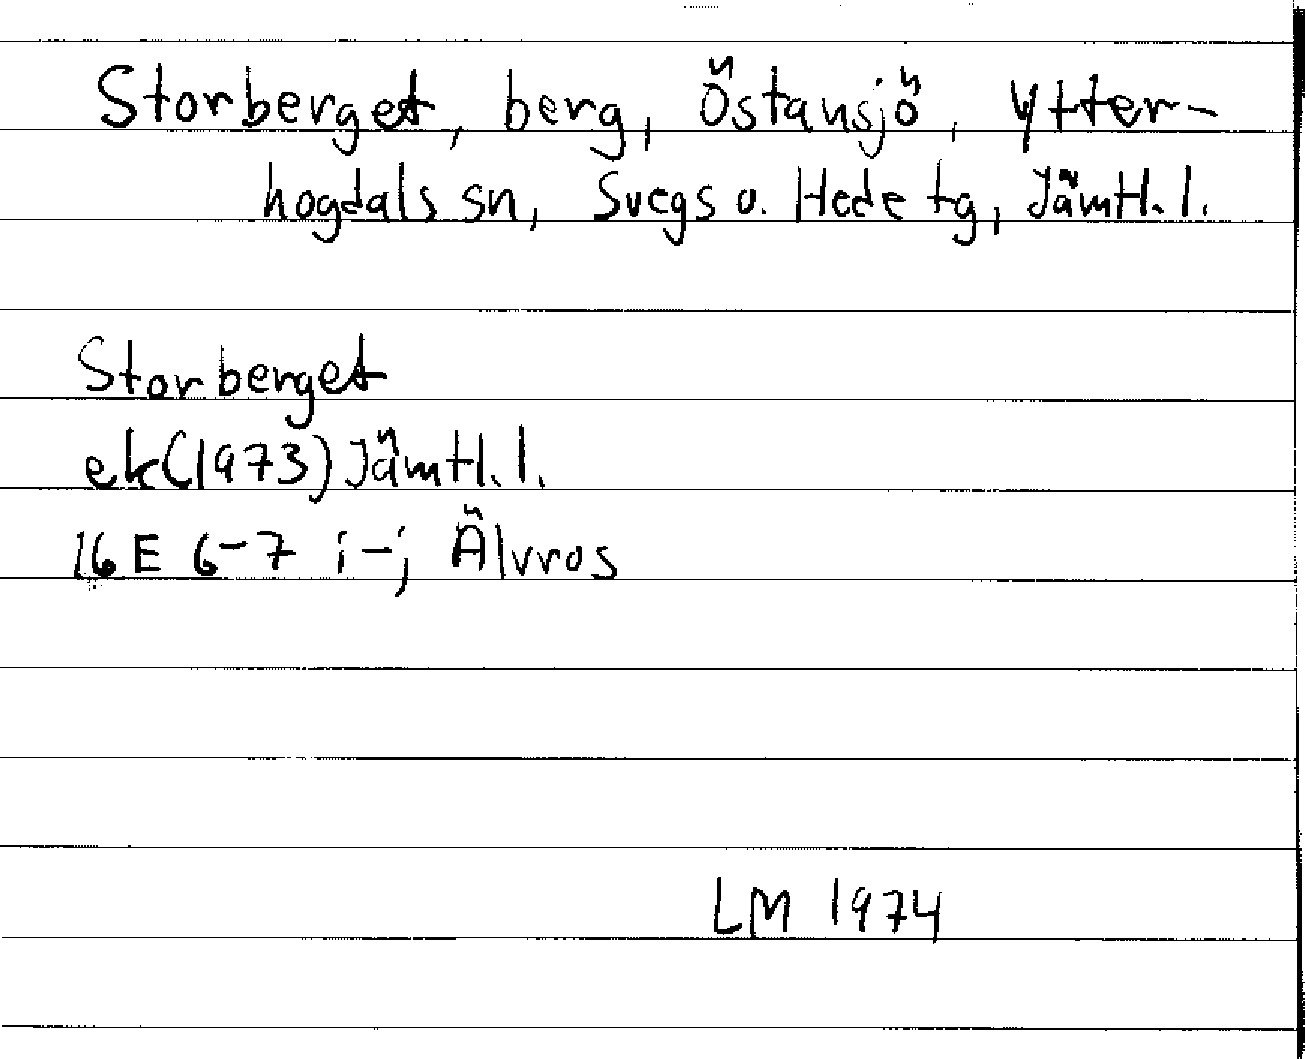 Storberget, berg, Östansjö, Ytter-
hogdals sn, Svegs o. Hede tg, Jämtl. l.
Storberget
ek(1973) Jämtl. l.
16E 6-7 i-j Älvros
LM 1974